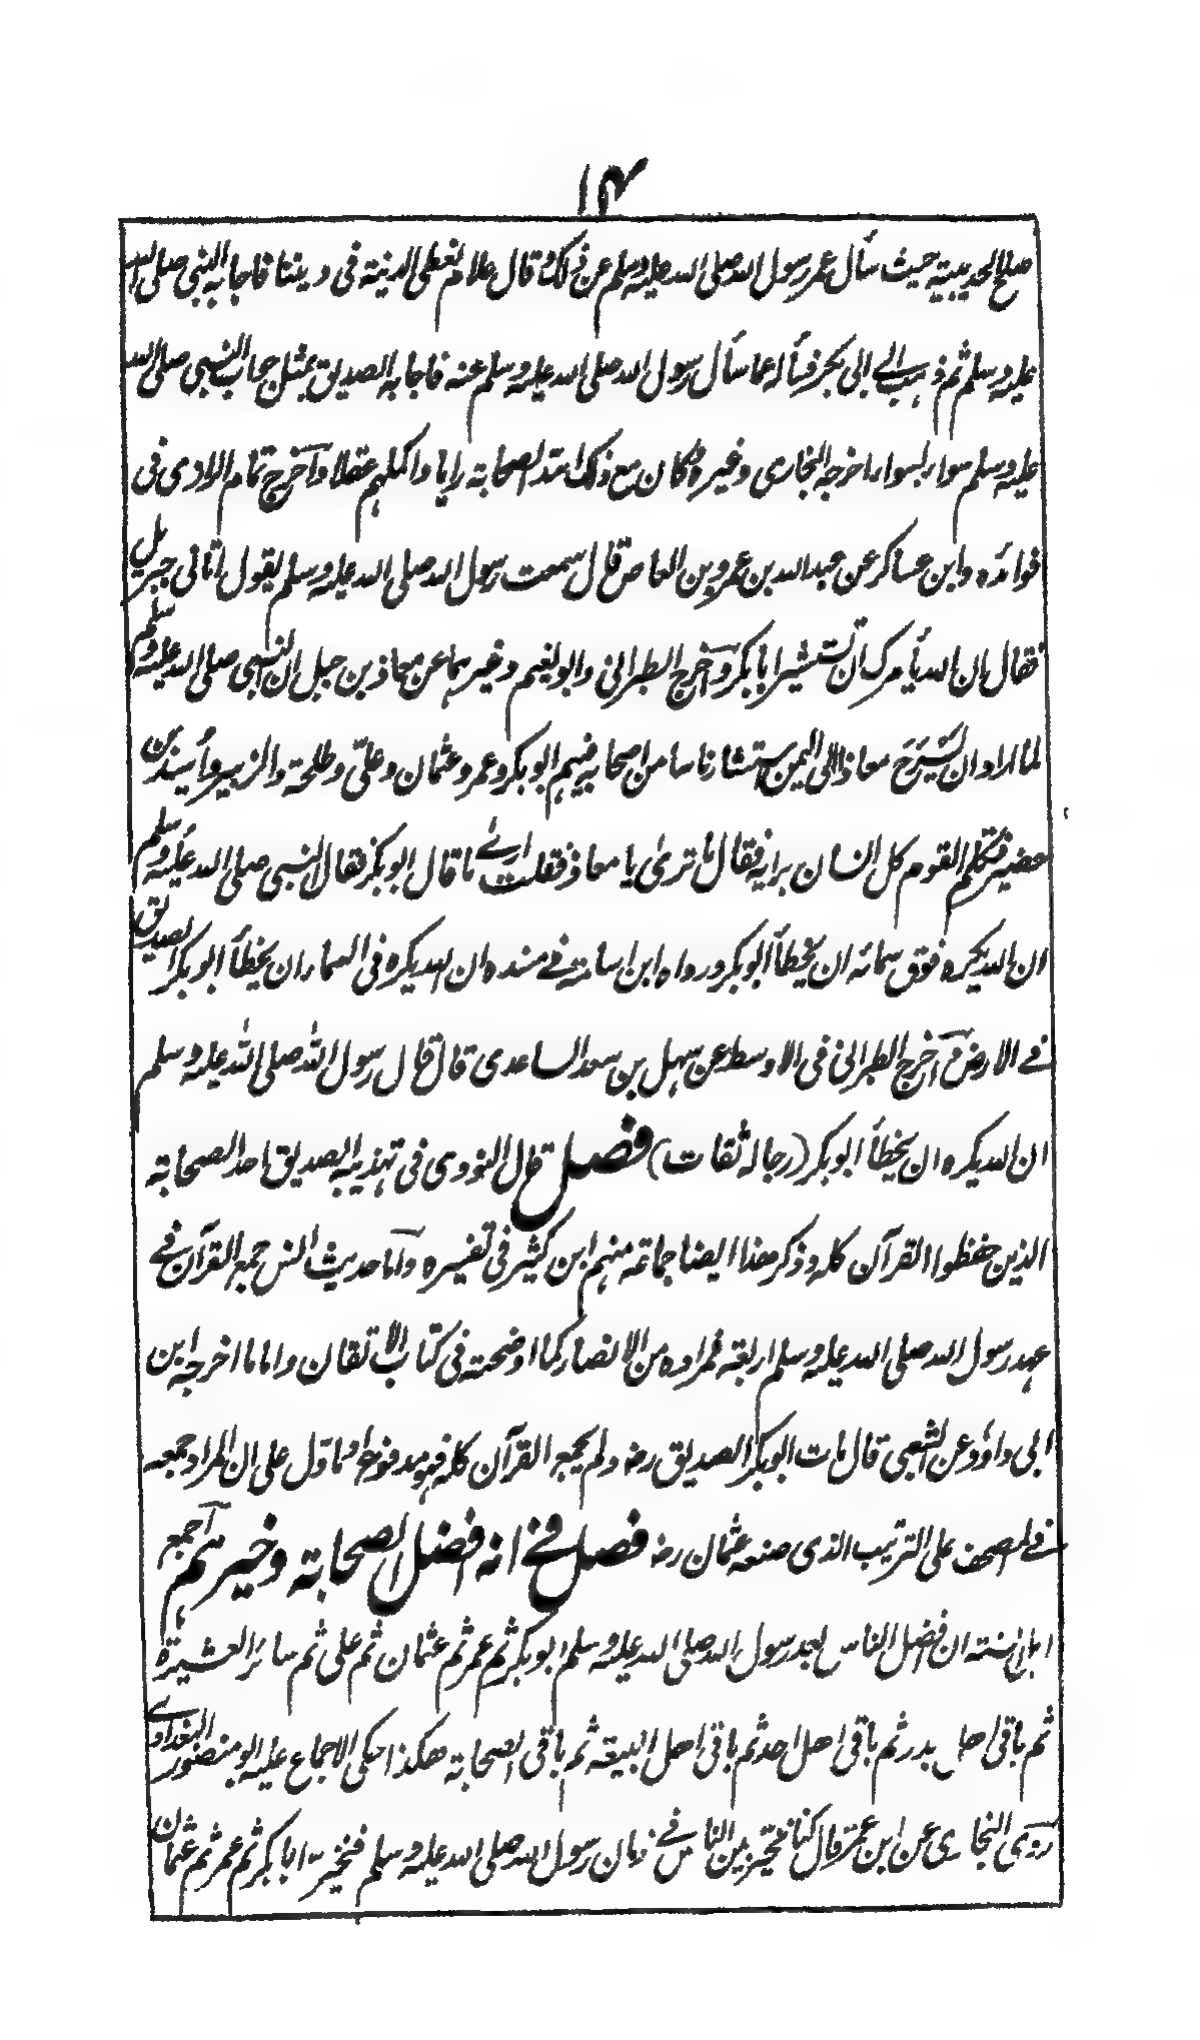 ١٤
صلح الحديبية حيث سأل عمر رسول الله صلى الله عليه وسلم عن ذلك وقال علام نعطى الدنية فى ديننا فاجابه النبى صلى الله
عليه وسلم ثم ذهب الے ابى بكر فسأله عما سأل رسول الله صلى الله عليه وسلم عنه فاجابه الصديق بمثل جواب النبى صلى الله
عليه وسلم سواء بسواء اخرجه البخارى وغيره وكان مع ذلك اسد الصحابة رايا واكملهم عقلا وآخرج تمام الرازى فى
فوائده وابن عساكر عن عبد الله بن عمرو بن العاص قال سمعت رسول الله صلى الله عليه وسلم يقول اتانى جبريل
فقال ان الله يأمرك ان تستشير ابا بكر وآخرج الطبرانى وابو نعيم وغيرهما عن معاذ بن جبل ان النبى صلى الله عليه وسلم
لما اراد ان يسرح معاذا الى اليمن استشار ناسا من اصحابه فيهم ابو بكر وعمر وعثمان وعلىّ وطلحة والزبير وأسيد بن
حضير فتكلم القوم كل انسان برايه فقال ما ترى يا معاذ فقلت ارى ما قال ابو بكر فقال النبى صلى الله عليه وسلم
ان الله يكره فوق سمائه ان يخطأ ابو بكر ورواه ابن اسامة فے مسنده ان الله يكره فى السماء ان يخطأ ابو بكر الصديق
فے الارض وآخرج الطبرانى فى الاوسط عن سهل بن سعد الساعدى قال قال رسول الله صلى الله عليه وسلم
ان الله يكره ان يخطأ ابو بكر (رجاله ثقات) فصل قال النووى فى تهذيبه الصديق احد الصحابة
الذين حفظوا القرآن كله وذكر هذا ايضا جماعة منهم ابن كثير فى تفسيره وآما حديث انس جمع القرآن فے
عهد رسول الله صلى الله عليه وسلم اربعة فمراده من الانصار كما اوضحته فى كتاب الاتقان واما ما اخرجه ابن
ابى داؤد عن الشعبى قال مات ابو بكر الصديق رضه ولم يجمع القرآن كله فهو مدفوع او مأوّل على ان المراد جمعه
فے المصحف على الترتيب الذى صنعه عثمان رضه فصل فے انه افضل الصحابة وخيرهم آجمع
اهل السنة ان افضل الناس بعد رسول الله صلى الله عليه وسلم ابو بكر ثم عمر ثم عثمان ثم على ثم سائر العشرة
ثم باقى اهل بدر ثم باقى اهل احد ثم باقى اهل البيعة ثم باقى الصحابة هكذا حكى الاجماع عليه ابو منصور البغدادى
روى البخارى عن ابن عمر قال كنا نخير بين الناس فے زمان رسول الله صلى الله عليه وسلم فنخير ابا بكر ثم عمر ثم عثمان